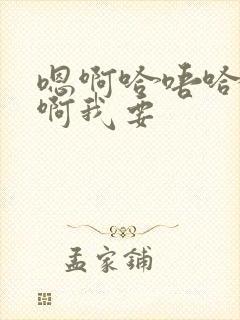 嗯啊哈唔哈
啊我要
孟家铺